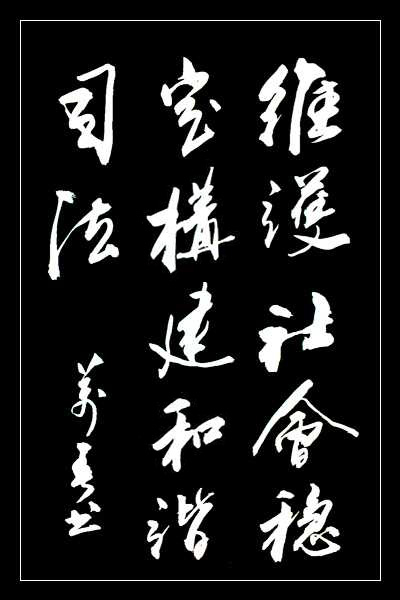 維護社會穩
定構建和諧
司法
萬書